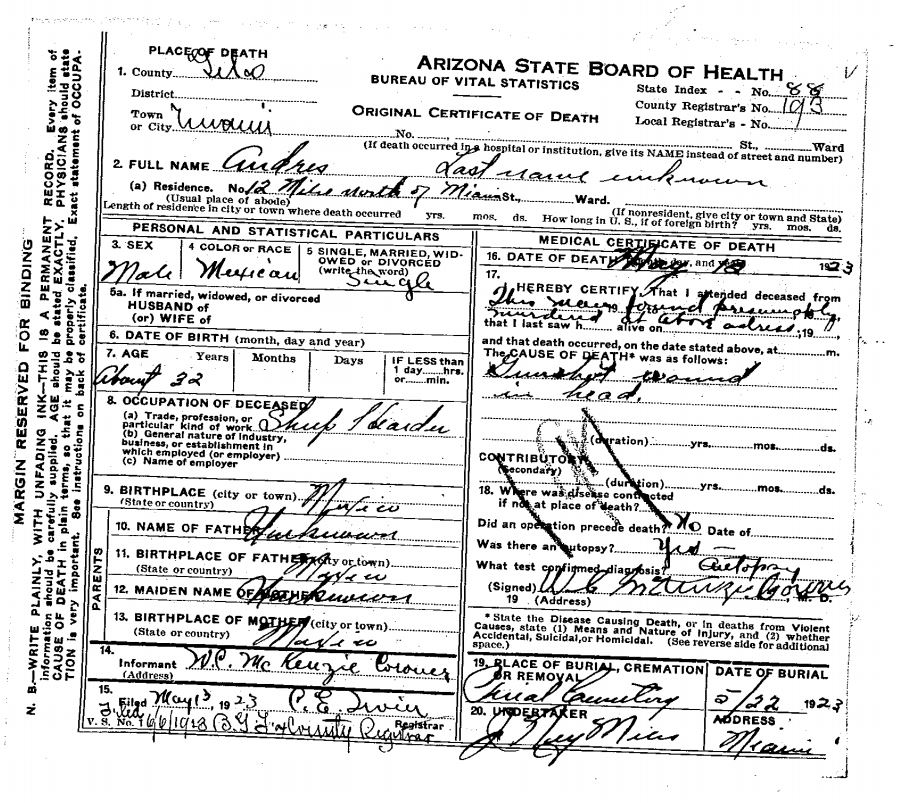 PLACE OF DEATH
1. County Gila
District
Town or City Miami
ARIZONA STATE BOARD OF HEALTH
BUREAU OF VITAL STATISTICS
ORIGINAL CERTIFICATE OF DEATH
State Index - - No. 88
County Registrar's No. 193
Local Registrar's - No.
No. St., Ward
(If death occurred in a hospital or institution, give its NAME instead of street and number)
2. FULL NAME Andres Last name unknown
(a) Residence. No. 12 Mile north of Miami St., Ward.
(Usual place of abode) (If nonresident, give city or town and State)
Length of residence in city or town where death occurred yrs. mos. ds. How long in U. S., if of foreign birth? yrs. mos. ds.
PERSONAL AND STATISTICAL PARTICULARS
3. SEX
Male
4 COLOR or RACE
Mexican
5 SINGLE, MARRIED, WIDOWED or DIVORCED
(write the word)
Single
5a. If married, widowed, or divorced
HUSBAND of
(or) WIFE of
6. DATE OF BIRTH (month, day and year)
7. AGE Years Months Days IF LESS than
1 day hrs.
or min.
About 32
8. OCCUPATION OF DECEASED
(a) Trade, profession, or
particular kind of work Sheep Hearder
(b) General nature of industry,
business, or establishment in
which employed (or employer)
(c) Name of employer
9. BIRTHPLACE (city or town) Mexico
(State or country)
PARENTS
10. NAME OF FATHER Unknown
11. BIRTHPLACE OF FATHER (city or town)
(State or country) Mexico
12. MAIDEN NAME OF MOTHER Unknown
13. BIRTHPLACE OF MOTHER (city or town)
(State or country) Mexico
14.
Informant W.C. McKenzie Coroner
(Address)
15.
Filed May 13, 1923 C. E. Irvin
Registrar
V. S. No. County Registrar
MEDICAL CERTIFICATE OF DEATH
16. DATE OF DEATH (month, day, and year) May 1923
17.
I HEREBY CERTIFY, That I attended deceased from
This man found presumably
murdered at above adress, 19
that I last saw h alive on
and that death occurred, on the date stated above, at m.
The CAUSE OF DEATH* was as follows:
Gunshot wound
in head.
(duration) yrs. mos. ds.
CONTRIBUTORY
(Secondary)
(duration) yrs. mos. ds.
18. Where was disease contracted
if not at place of death?
Did an operation precede death? No Date of
Was there an autopsy? Yes
What test confirmed diagnosis? Autopsy
(Signed) W C McKenzie Coroner M. D.
19 (Address)
* State the Disease Causing Death, or in deaths from Violent
Causes, state (1) Means and Nature of Injury, and (2) whether
Accidental, Suicidal, or Homicidal. (See reverse side for additional
space.)
19. PLACE OF BURIAL, CREMATION
OR REMOVAL
Cemetery
DATE OF BURIAL
5/22 1923
20. UNDERTAKER
ADDRESS
Miami
MARGIN RESERVED FOR BINDING
N. B.—WRITE PLAINLY, WITH UNFADING INK—THIS IS A PERMANENT RECORD. Every item of
information should be carefully supplied. AGE should be stated EXACTLY. PHYSICIANS should state
CAUSE OF DEATH in plain terms, so that it may be properly classified. Exact statement of OCCUPA-
TION is very important. See instructions on back of certificate.